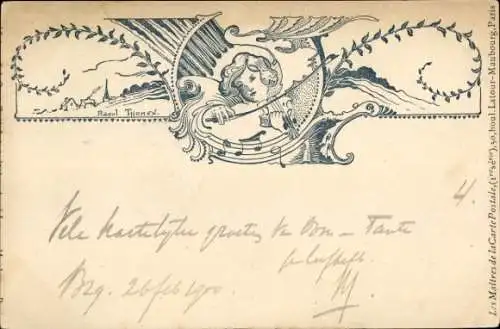 Raoul Thomen.
4.
Vele hartelijke groeten van Oom – Tante
liefhebb.
Brg. 26 feb 1900
M
Les Maîtres de la Carte Postale, (1re Sie), 50, boul. Latour-Maubourg, Paris